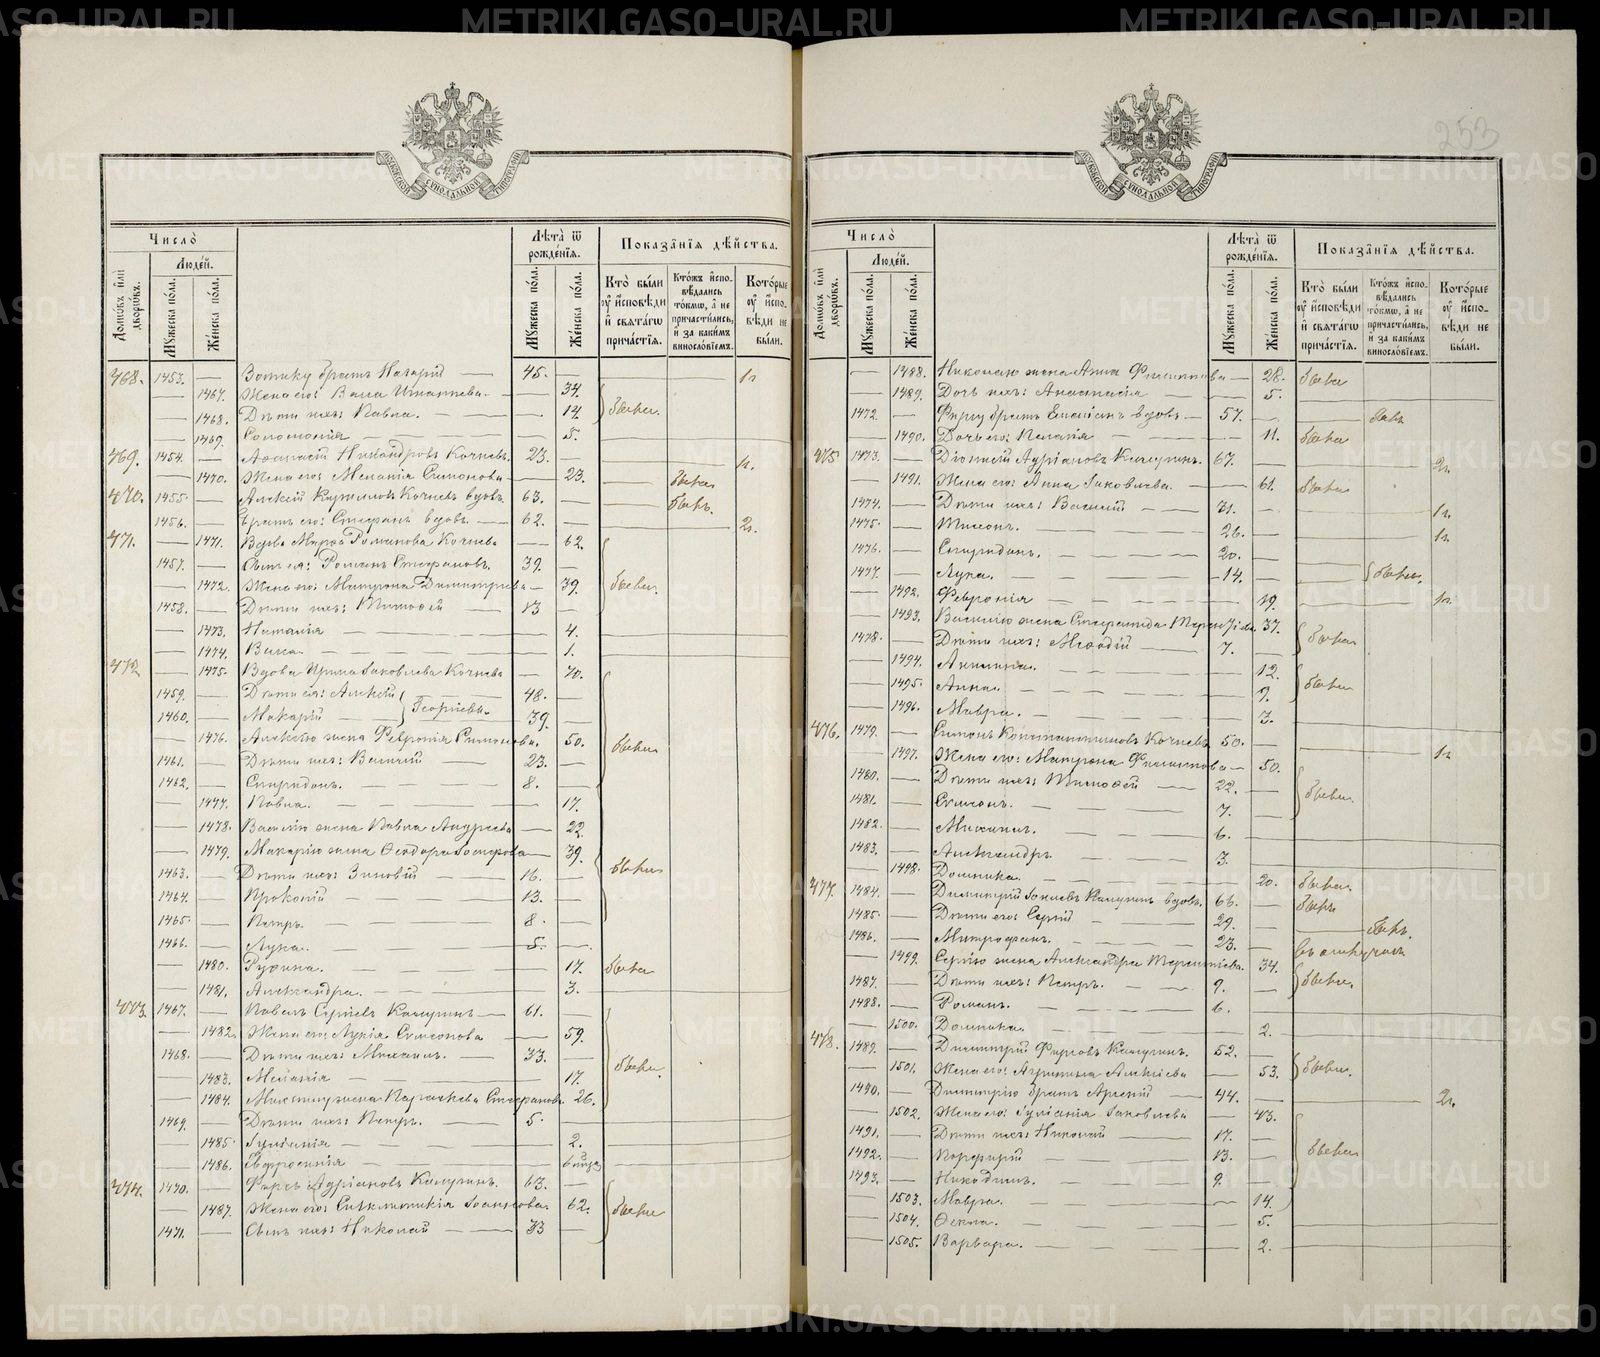 METRIKI.GASO-URAL.RU
253
МОСКОВСКОЙ СѴНОДАЛЬНОЙ ТИПОГРАФІИ
Число̀
Людей.
Домѡвъ и҆лѝ дворѡвъ.
Мꙋжеска по́ла.
Же́нска по́ла.
Лѣ́та ѿ рожде́нїѧ.
Мꙋжеска по́ла.
Же́нска по́ла.
Показа̑нїѧ дѣ́йства.
Кто̀ бы́ли ᲂу҆ и҆сповѣ́ди и҆ свѧта́гѡ прича́стїѧ.
Кто́жъ и҆спо- вѣ́дались то́кмѡ, а҆ не причасти́лись, и҆ за каки́мъ винословїемъ.
Кото́рые ᲂу҆ и҆спо- вѣ́ди не бы́ли.
468. 1453. — братъ Назарій — 45. 1л
— 1467. Жена его: Васса Игнатіева — 34.
— 1468. Дѣти ихъ: Павла. — 14. были
— 1469. Соломонія — 5.
469. 1454. — Аѳанасій Никандровъ Кочневъ. 23. 1л.
— 1470. Жена его: Меланія Симонова — 23. была
470. 1455. — Алексій Кириловъ Кочневъ вдовъ 63. былъ.
1456. — Братъ его: Стефанъ вдовъ. — 62. 2л.
471. — 1471. Вдова Марѳа Романова Кочнева — 62.
1457. — Сынъ ея: Романъ Стефановъ. 39.
— 1472. Жена его: Матрона Димитріева — 39. были.
1458. — Дѣти ихъ: Тимоѳей — 13
— 1473. Наталія — 4.
— 1474. Васса. — 1.
472 — 1475. Вдова Ирина Іаковлева Кочнева — 70.
1459. — Дѣти ея: Алексій 48.
1460. — Макарій — Георгіевы. 39.
— 1476. Алексію жена Февронія Симонова. 50. были
1461. — Дѣти ихъ: Василій — 23.
1462. — Спиридонъ. — 8.
— 1477. Павла. — 17.
— 1478. Василію жена Павла Андреева — 22
— 1479. Макарію жена Ѳеодора Іосифова — 39.
1463. — Дѣти ихъ: Зиновій — 16. были
1464. — Прокопій — 13.
1465. — Петръ. — 8.
1466. — Лука. — 5.
— 1480. Руфина. — 17. была
— 1481. Александра. — 3.
473. 1467. — Павелъ Сергіевъ Качусинъ — 61.
— 1482. Жена его: Лукія Симонова — 59.
1468. — Дѣти ихъ: Михаилъ. — 33. были.
— 1483. Меланія — 17.
— 1484. Михаилу жена Параскева Стефанова. 26.
1469. — Дѣти ихъ: Петръ. — 5.
— 1485. Іуліанія — 2.
— 1486. Евфросинія —
474. 1470. — Фирсъ Адріановъ Качусинъ. 63.
— 1487. Жена его: Синклитикія Іоаннова. 62. были
1471. — Сынъ ихъ: Николай — 33
— 1488. Николаю жена Анна Филиппова — 28. была
— 1489. Дочь ихъ: Анастасія — 5.
1472. — Фирсу братъ вдовъ — 57. былъ
— 1490. Дочь его: Пелагія — 11. была
475 1473. — Діонисій Адріановъ Качусинъ. 67. 2л.
— 1491. Жена его: Анна Іаковлева. — 61. была
1474. — Дѣти ихъ: Василій — 31. 1л.
1475. — Тихонъ. 26. 1л.
1476. — Спиридонъ. — 20.
1477. — Лука. — 14. были.
— 1492. Февронія — 19. 1л.
— 1493. Василію жена Стефанида Терентіева. 37.
1478. — Дѣти ихъ: Меѳодій — 7. были
— 1494. Акилина. — 12.
— 1495. Анна. — 9. были
— 1496. Мавра. — 3.
476. 1479. — Симонъ Константиновъ Кочневъ 50. 1л
— 1497. Жена его: Матрона Филиппова — 50.
1480. — Дѣти ихъ: Тимоѳей — 22. были.
1481. — Симонъ. — 7.
1482. — Михаилъ. — 6.
1483. — Александръ — 3.
— 1498. Домника. — 20. была.
477. 1484. — Димитрій Качусинъ вдовъ. 66. былъ
1485. — Дѣти его: Сергій — 29. былъ.
1486. — Митрофанъ. — 23. въ отлучкѣ
— 1499. Сергію жена Александра Терентіева. 34. были.
1487. — Дѣти ихъ: Петръ. — 9.
1488. — Романъ. — 6.
— 1500. Домника. — 2.
478. 1489. — Димитрій Фирсовъ Качусинъ. 52.
— 1501. Жена его: Агриппина Алексіева 53. были.
1490. — Димитрію братъ Арсеній — 44. 2л.
— 1502. Жена его: Іуліанія Іаковлева — 43.
1491. — Дѣти ихъ: Николай — 17.
1492. — Порфирій — 13. были
1493. — Никодимъ. — 9.
— 1503. Мавра. — 14.
— 1504. Ѳекла. — 5.
— 1505. Варвара. — 2.